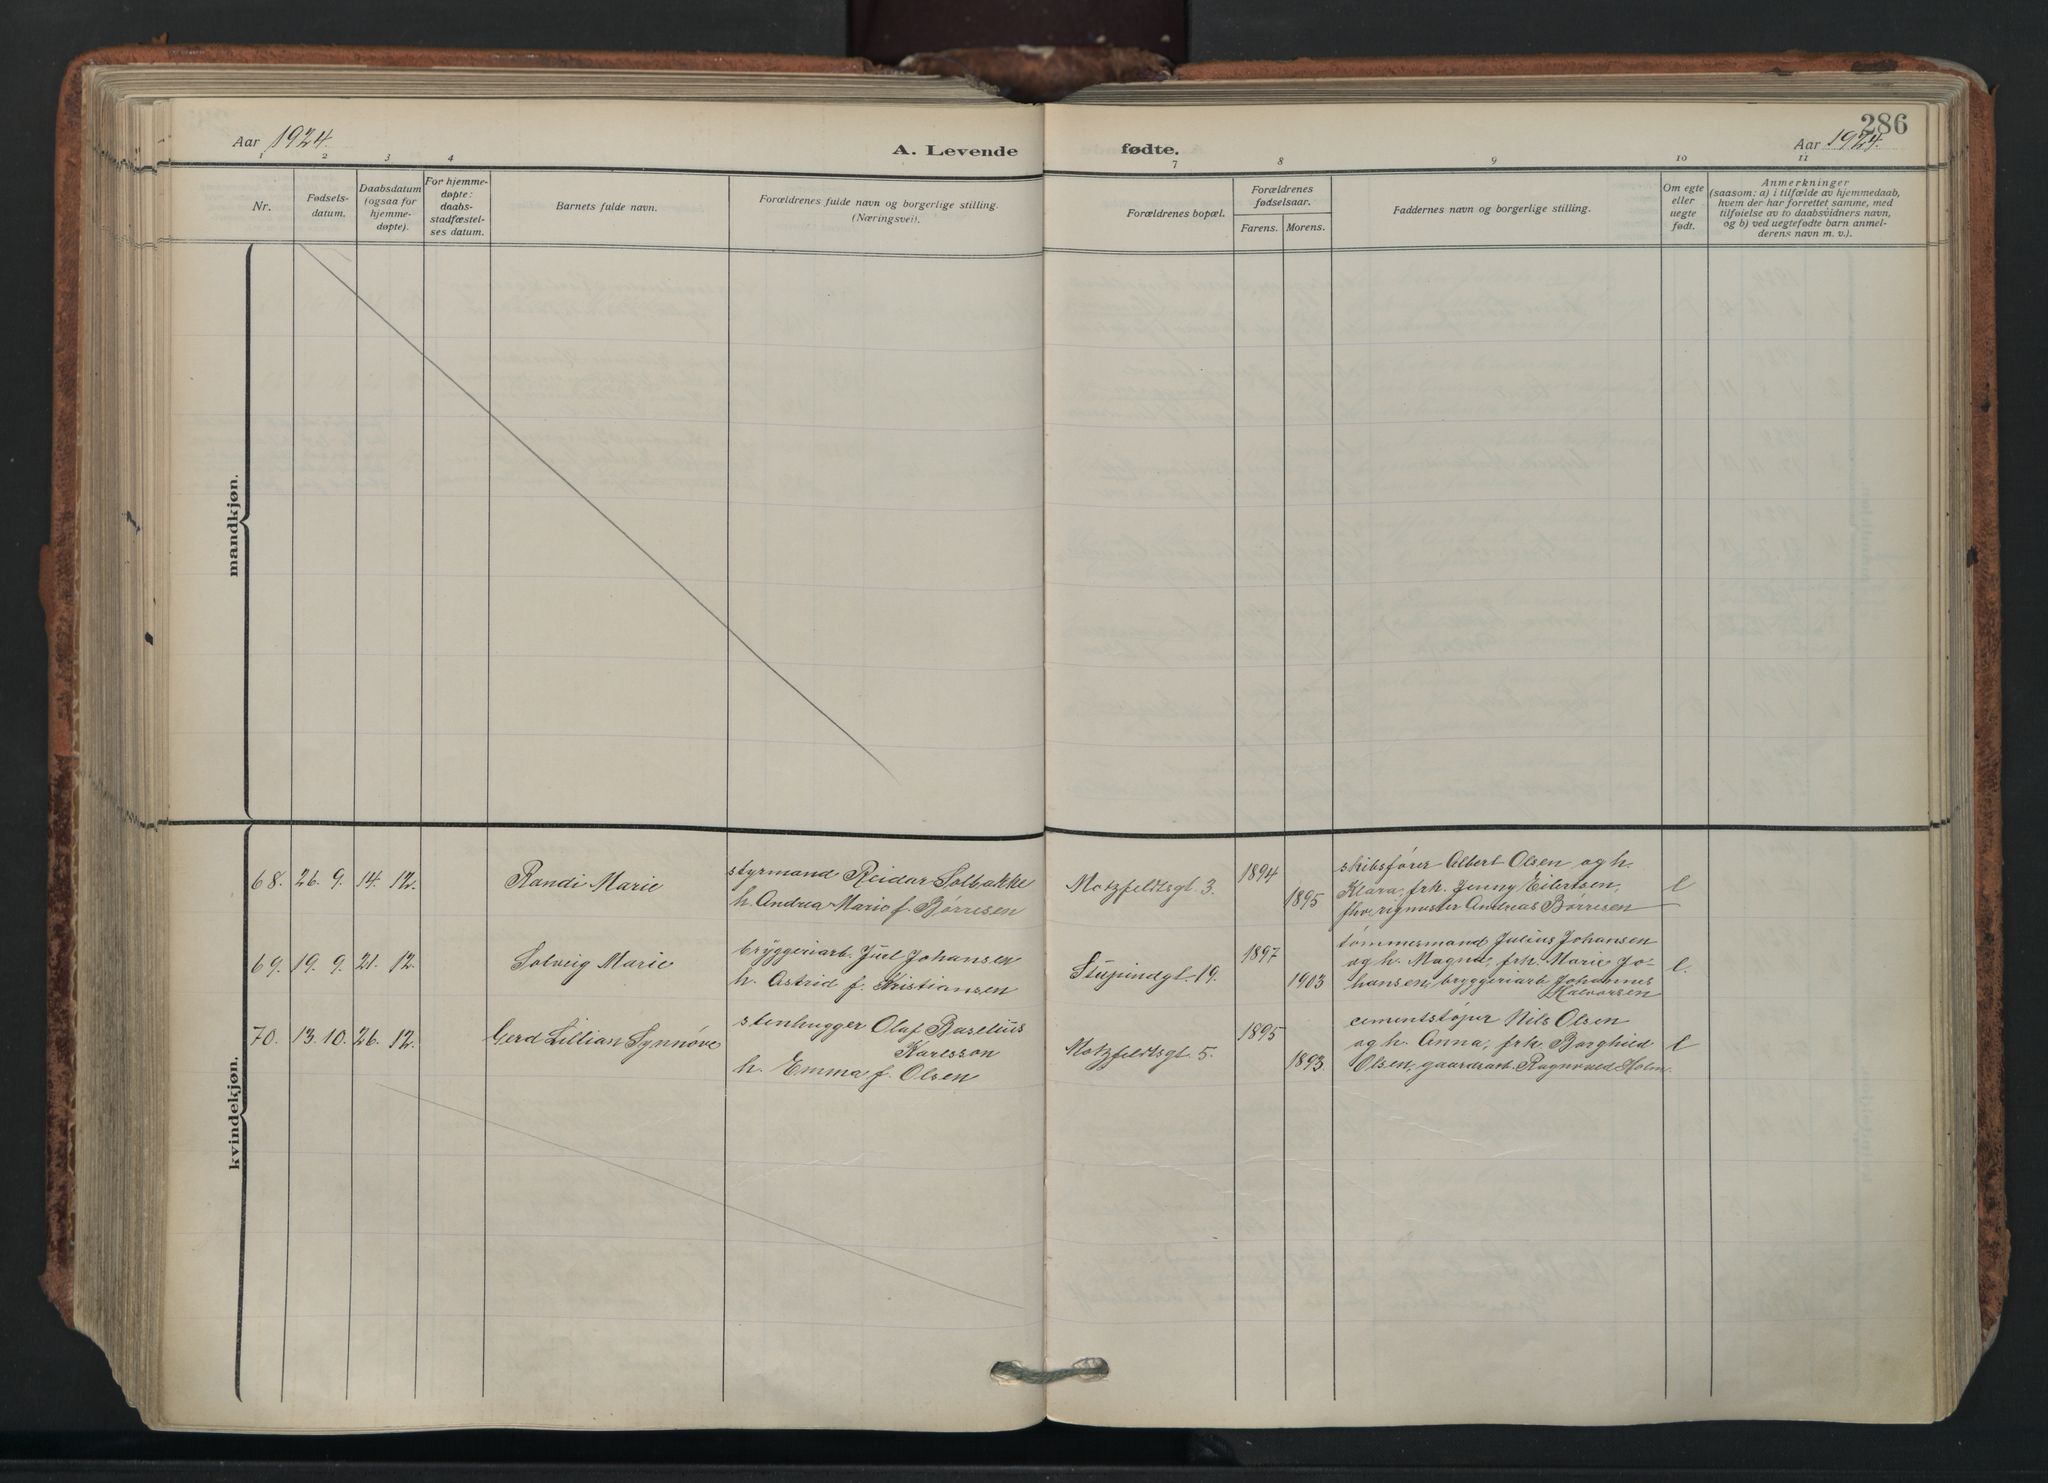 286
Aar 1924.
A. Levende fødte.
Aar 1924.
1 2 3 4 7 8 9 10 11
Nr.
Fødsels-
datum.
Daabsdatum
(ogsaa for
hjemme-
døpte).
For hjemme-
døpte:
daabs-
stadfæstel-
ses datum.
Barnets fulde navn.
Forældrenes fulde navn og borgerlige stilling.
(Næringsvei).
Forældrenes bopæl.
Forældrenes
fødselsaar.
Farens. Morens.
Faddernes navn og borgerlige stilling.
Om egte
eller
uegte
født.
Anmerkninger
(saasom: a) i tilfælde av hjemmedaab,
hvem der har forrettet samme, med
tilføielse av to daabsvidners navn,
og b) ved uegtefødte barn anmel-
derens navn m. v.).
mandkjøn.
kvindekjøn.
68. 26. 9. 14. 12. Randi Marie
styrmand Reidar Solbakke
h. Andrea Marie f. Børresen
Motzfeldtsgt. 3.
1894
1895
skibsfører Albert Olsen og h.
Klara, frk. Jenny Eilertsen,
fhv. rigmester Andreas Børresen
e
69. 19. 9. 21. 12. Solveig Marie
bryggeriarb. Juel Johansen
h. Astrid f. Kristiansen
Stupindgt. 19.
1897
1903
tømmermand Julius Johansen
og h. Magna, frk. Marie Jo-
hansen, bryggeriarb Johannes
Halvorsen
e.
70. 13. 10. 26. 12. Gerd Lillian Synnøve
stenhugger Olaf Baselius
Karlsson
h. Emma f. Olsen
Motzfeldtsgt. 5.
1895
1893.
cementstøper Nils Olsen
og h. Anna, frk. Borghild
Olsen, gaardsarb. Ragnvald Holm.
e